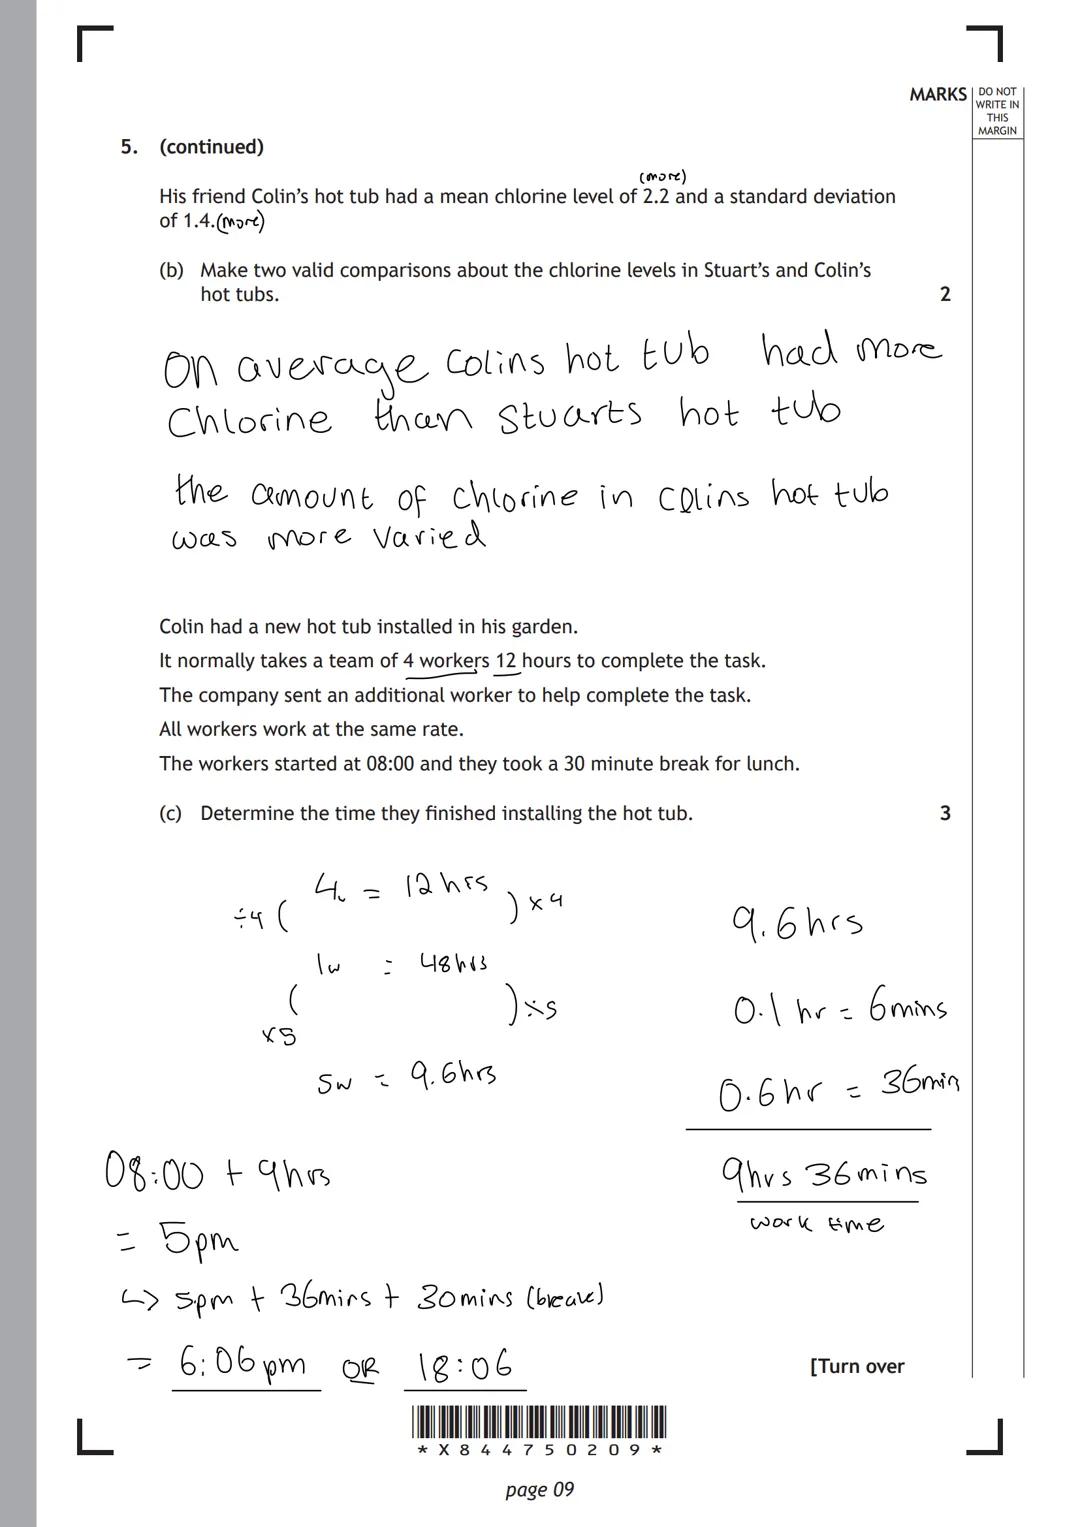 MARKS
DO NOT
WRITE IN
THIS
MARGIN
5. (continued)
(more)
His friend Colin's hot tub had a mean chlorine level of 2.2 and a standard deviation
of 1.4.(more)
(b) Make two valid comparisons about the chlorine levels in Stuart's and Colin's
hot tubs.
2
On average Colins hot tub had more
Chlorine than Stuarts hot tub
the amount of chlorine in Colins hot tub
was more varied
Colin had a new hot tub installed in his garden.
It normally takes a team of 4 workers 12 hours to complete the task.
The company sent an additional worker to help complete the task.
All workers work at the same rate.
The workers started at 08:00 and they took a 30 minute break for lunch.
(c) Determine the time they finished installing the hot tub.
3
4w = 12hrs
÷4 ( ) ×4
1w = 48hrs
( ) ÷5
×5
5w = 9.6hrs
9.6hrs
0.1 hr = 6mins
0.6hr = 36min
9hrs 36mins
work time
08:00 + 9hrs
= 5pm
↳ 5pm + 36mins + 30mins (break)
= 6:06pm OR 18:06
[Turn over
*X844750209*
page 09